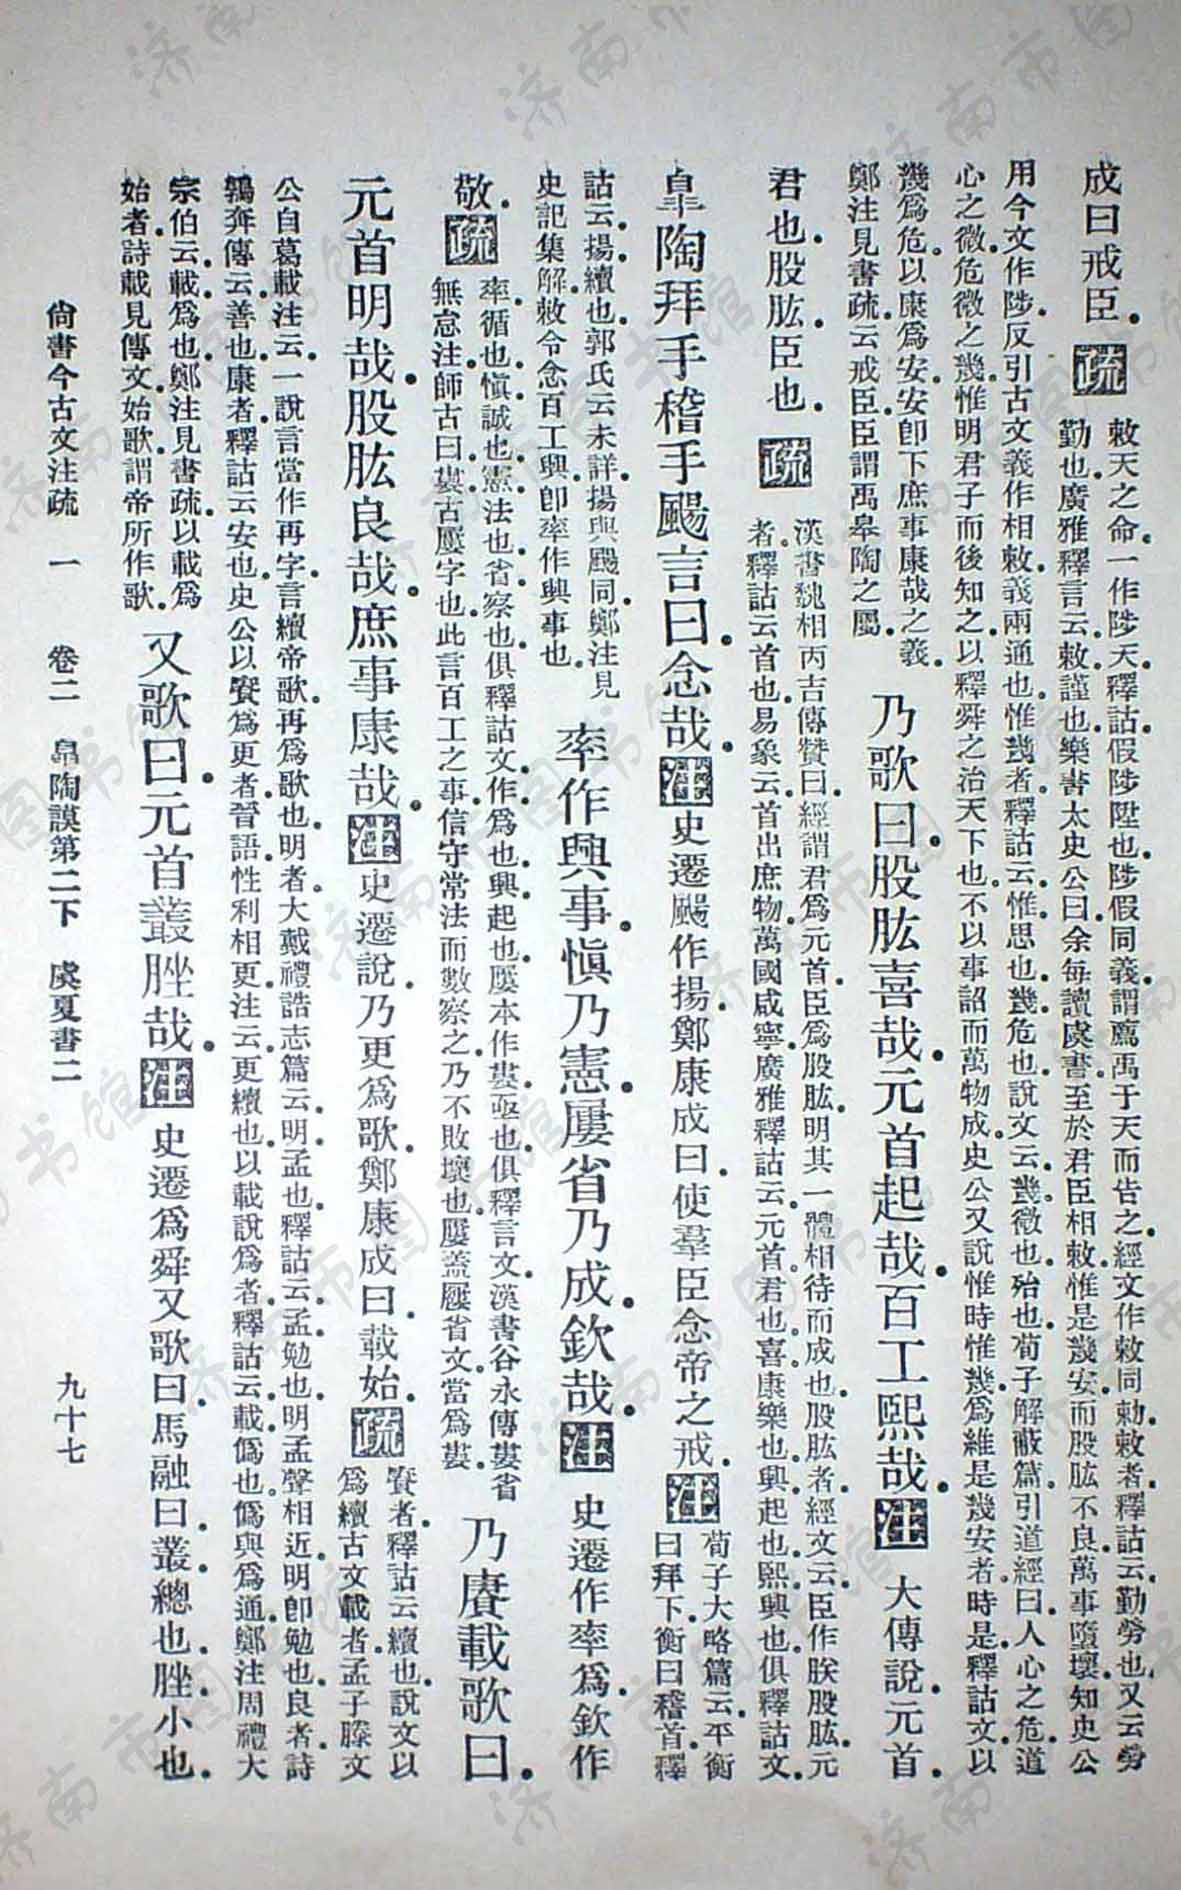 成曰戒臣.疏
敕天之命.一作陟天.釋詁.假陟陞也.陟假同義.謂薦禹于天而告之.經文作敕.同勅.敕者.釋詁云.勤勞也.又云.勞
勤也.廣雅釋言云.敕.謹也.樂書太史公曰.余每讀虞書.至於君臣相敕.惟是幾安.而股肱不良.萬事墮壞.知史公
用今文作陟.反引古文義作相敕.義兩通也.惟幾者.釋詁云.惟思也.幾危也.說文云.幾微也.殆也.荀子解蔽篇.引道經曰.人心之危.道
心之微.危微之幾.惟明君子而後知之.以釋舜之治天下也.不以事詔而萬物成.史公又說惟時惟幾.爲維是幾安者.時是.釋詁文.以
幾爲危.以康爲安.安卽下庶事康哉之義.
鄭注見書疏.云戒臣.臣謂禹皋陶之屬.
乃歌曰.股肱喜哉.元首起哉.百工熙哉.注 大傳說元首.
君也.股肱.臣也.疏
漢書魏相丙吉傳贊曰.經謂君爲元首.臣爲股肱.明其一體相待而成也.股肱者.經文云.臣作朕股肱.元
者.釋詁云.首也.易象云.首出庶物.萬國咸寧.廣雅釋詁云.元首.君也.喜康樂也.興起也.熙興也.俱釋詁文.
皐陶拜手稽手颺言曰.念哉.注史遷颺作揚.鄭康成曰.使羣臣念帝之戒.注
荀子大略篇云.平衡
曰拜.下衡曰稽首.釋
詁云.揚.續也.郭氏云.未詳.揚與颺同.鄭注見
史記集解.敕令念百工興.卽率作興事也.
率作興事.慎乃憲.屢省乃成.欽哉.注 史遷作率爲.欽作
敬.疏
率.循也.慎.誠也.憲.法也.省.察也.俱釋詁文.作.爲也.興.起也.屢本作婁.亟也.俱釋言文.漢書谷永傳.婁省
無怠.注.師古曰.婁古屢字也.此言百工之事.信守常法而數察之.乃不敗壞也.屢蓋屨省文.當爲婁.
乃賡載歌曰.
元首明哉.股肱良哉.庶事康哉.注史遷說.乃更爲歌.鄭康成曰.載始.疏
賡者.釋詁云.續也.說文以
爲續古文.載者.孟子滕文
公自葛載.注云.一說言當作再字.言續帝歌.再爲歌也.明者.大戴禮誥志篇云.明孟也.釋詁云.孟.勉也.明孟聲相近.明卽勉也.良者.詩
鶉奔傳云.善也.康者.釋詁云.安也.史公以賡爲更者.晉語.性利相更.注云.更續也.以載說爲者.釋詁云.載.僞也.僞與爲通.鄭注周禮大
宗伯云.載.爲也.鄭注見書疏.以載爲
始者.詩載見傳文.始歌.謂帝所作歌.
又歌曰.元首叢脞哉.注 史遷爲舜又歌曰.馬融曰.叢總也.脞小也.
尙書今古文注疏 一 卷二 皐陶謨第二下 虞夏書二 九十七